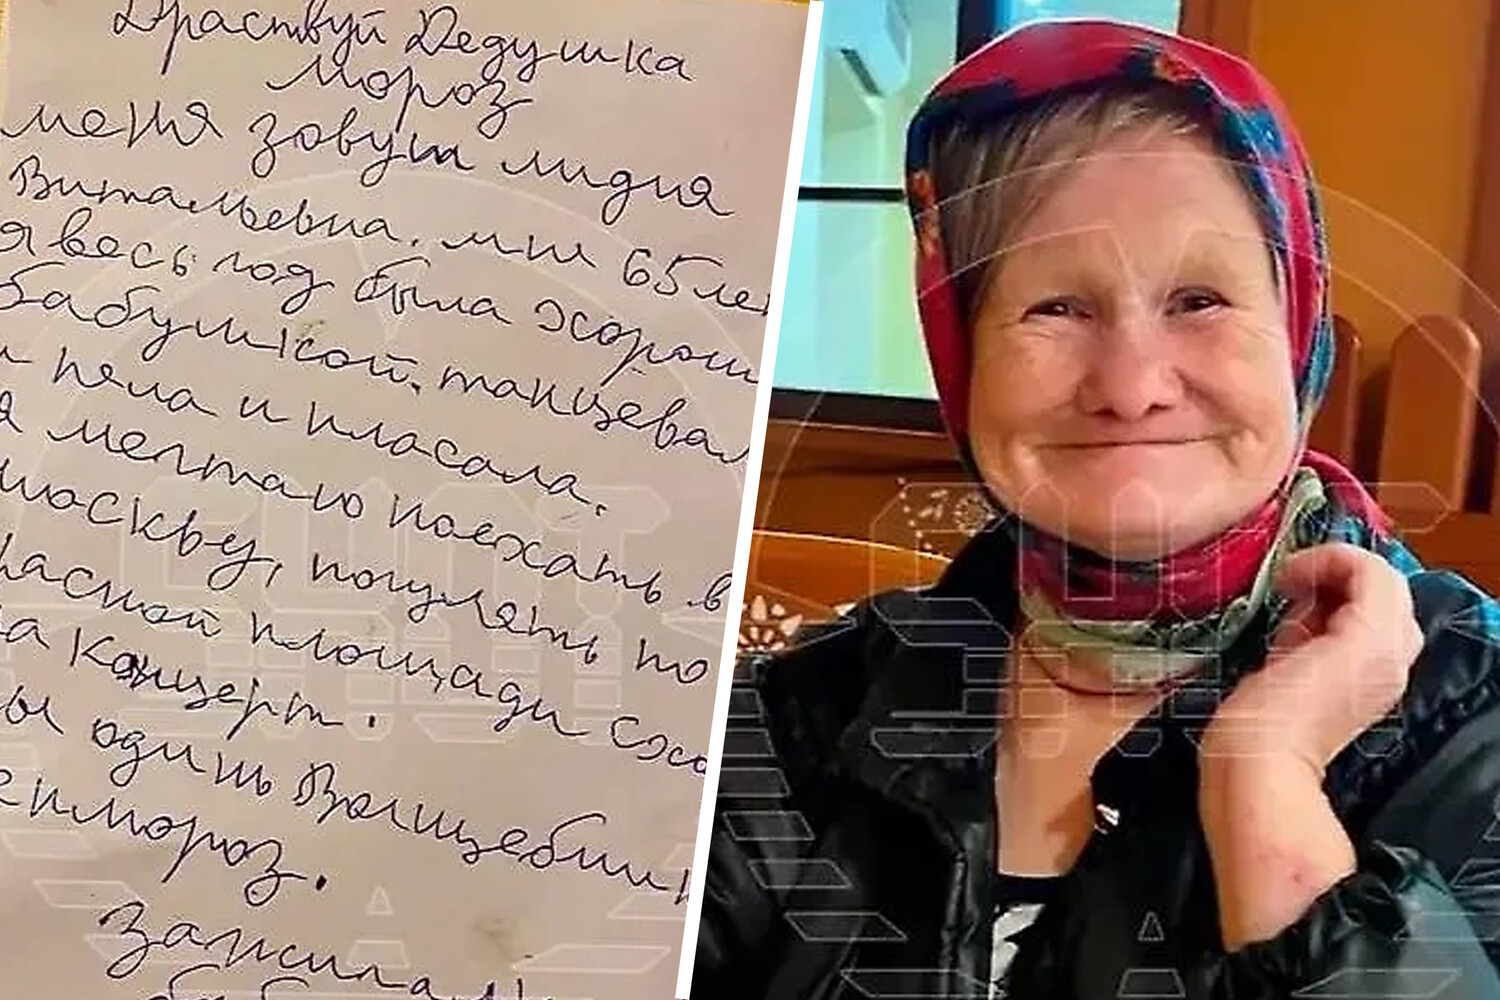 Драствуй Дедушка
мороз
меня зовут лидия
Витальевна. мне 65 лет
я весь год была хорош
бабушкой. танцевал
и пела и плясала.
я мечтаю поехать в
москву, погулять по
расной площади схо
на концерт.
ты один Волщебник
мороз.